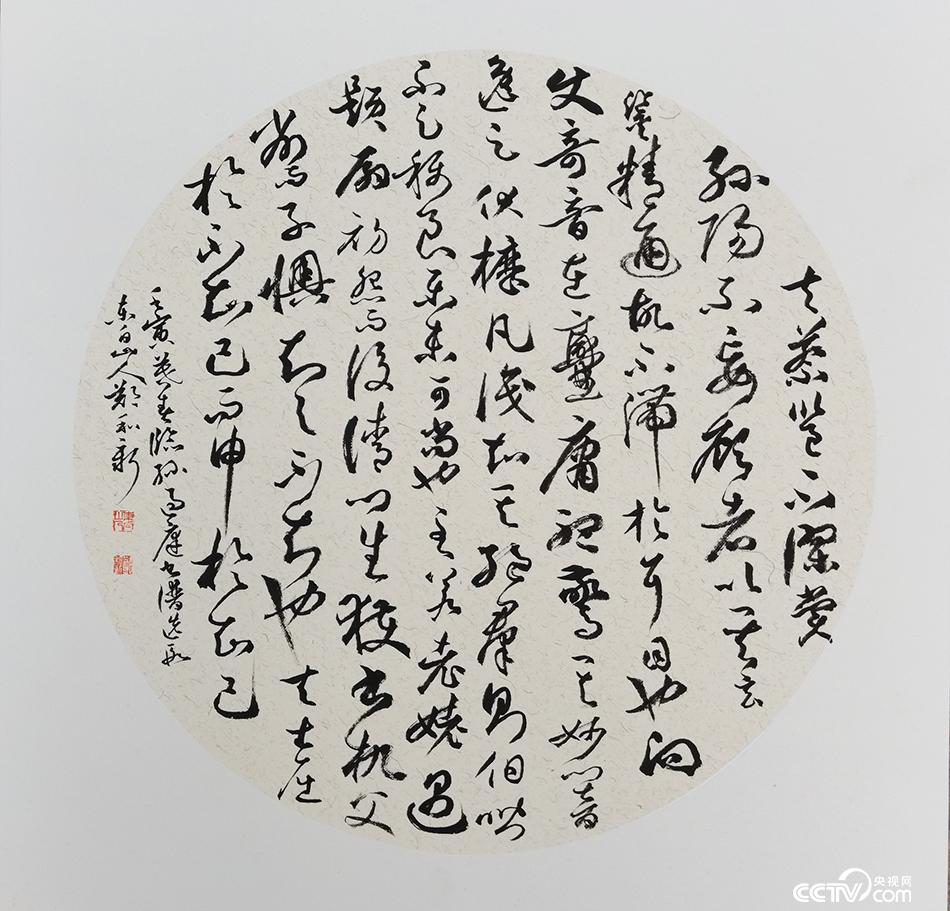 夫蔡邕不謬賞
孫陽不妄顧者以其玄
鑒精通故不滯於耳目也向
使奇音在爨庸聽驚其妙響
逸足伏櫪凡識知其絕羣則伯喈
不足稱良樂未可尚也至若老姥遇
題扇初怨而後請門生獲書机父
削而子懊知與不知也夫士屈
於不知己而申於知己
壬寅暮春臨孫過庭書譜選段
東白山人鄭和新
CCTV 央视网
com